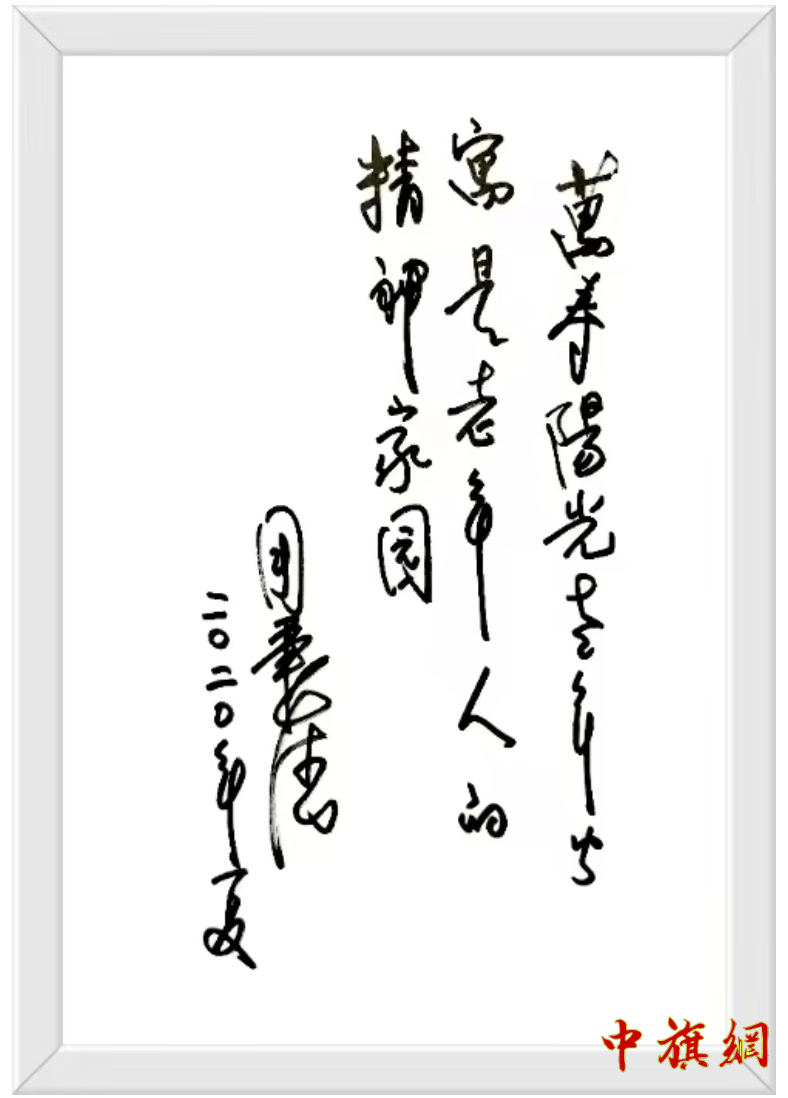 萬寿陽光老年公
寓是老年人的
精神家园
周秉德
二〇二〇年夏
中旗網